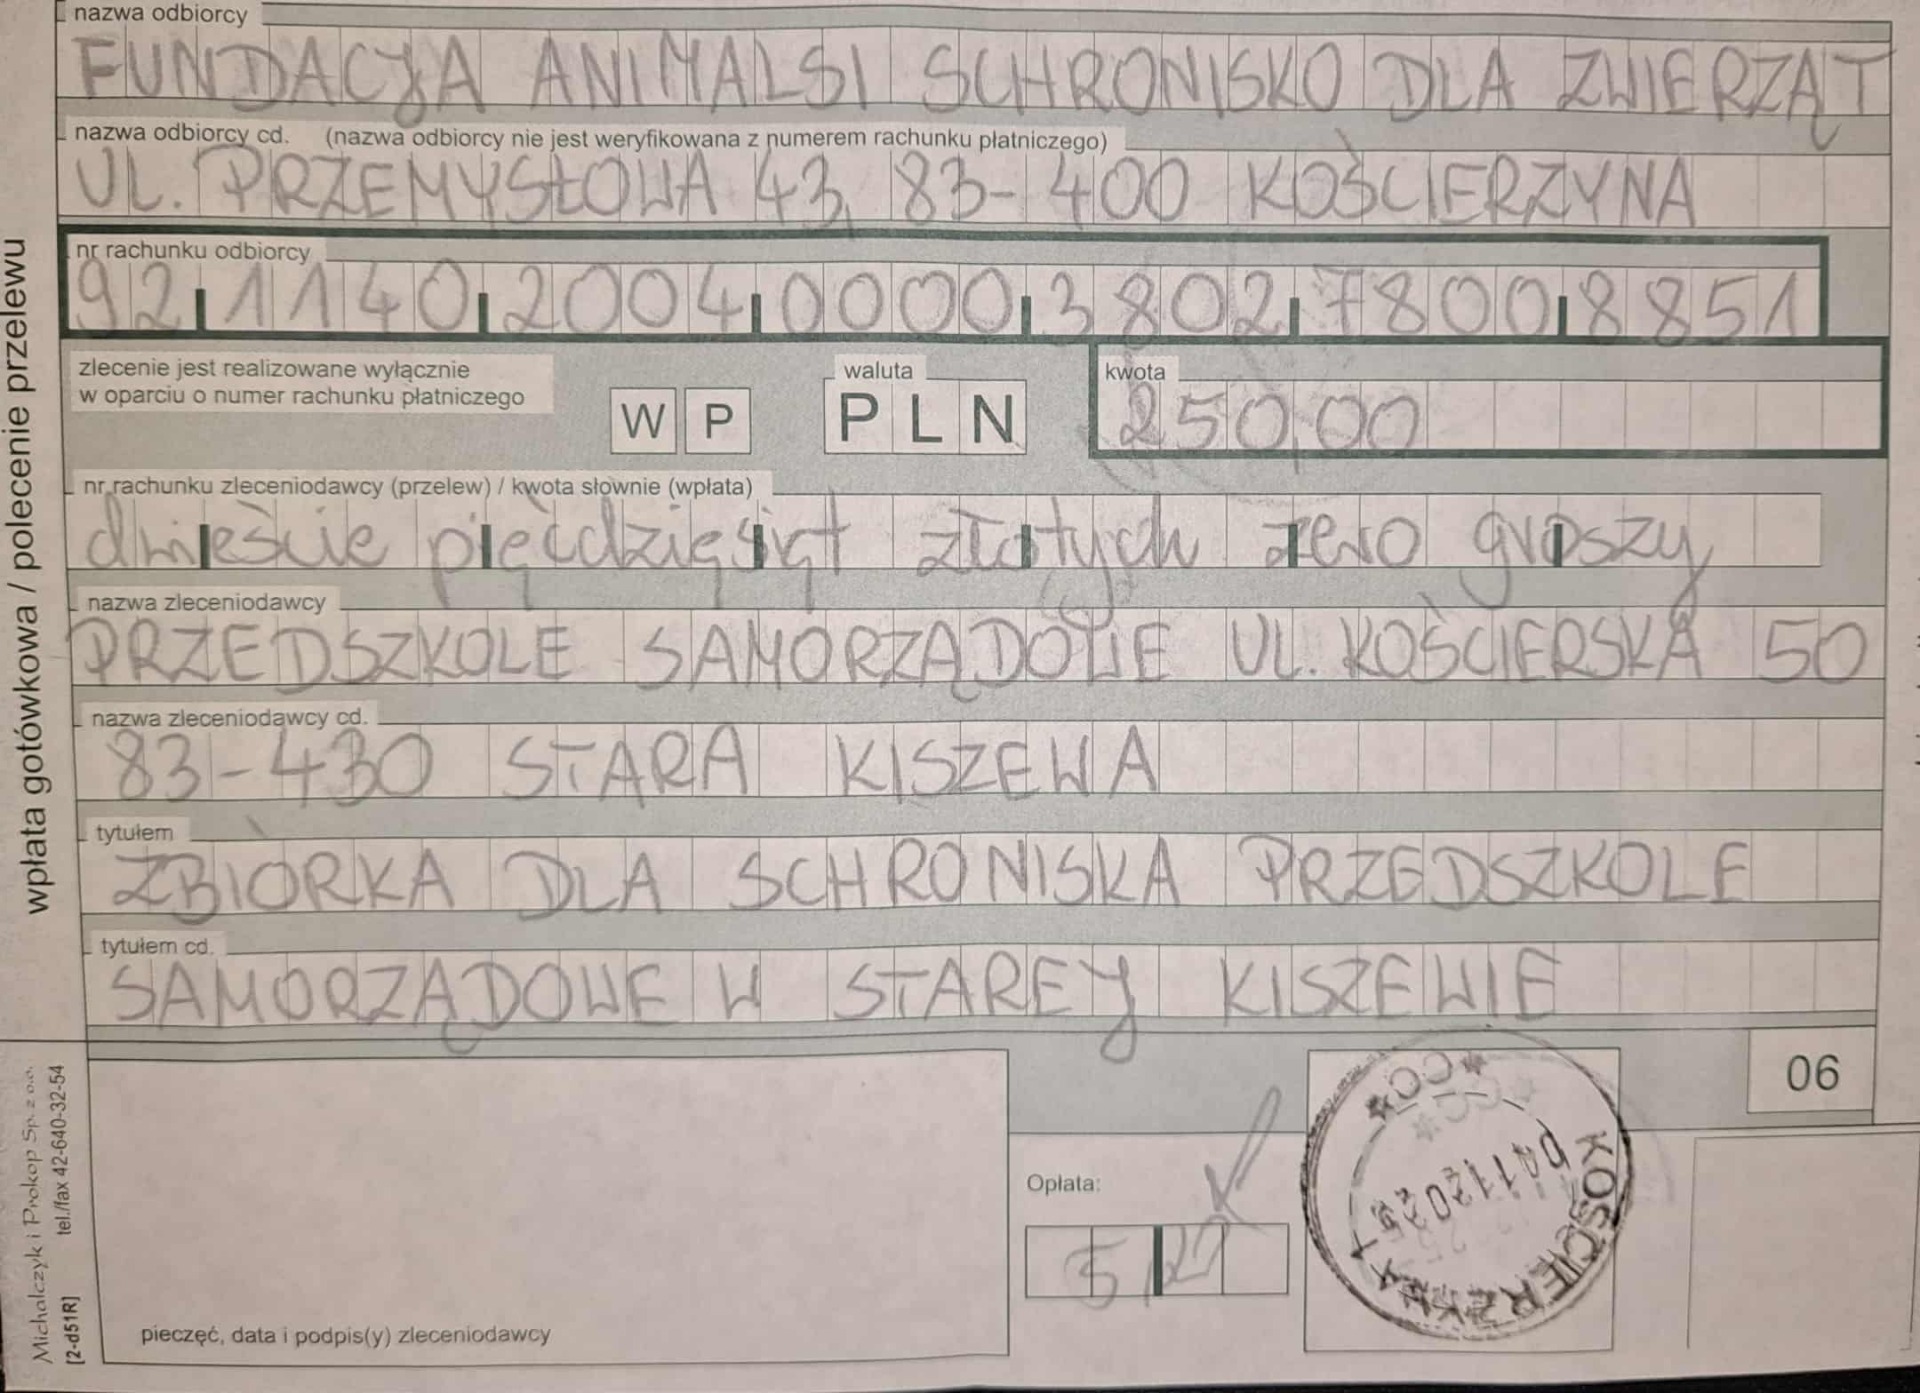 nazwa odbiorcy
FUNDACJA ANIMALSI SCHRONISKO DLA ZWIERZĄT
nazwa odbiorcy cd. (nazwa odbiorcy nie jest weryfikowana z numerem rachunku płatniczego)
UL. PRZEMYSŁOWA 43, 83-400 KOŚCIERZYNA
nr rachunku odbiorcy
92 1140 2004 0000 3802 7800 8851
zlecenie jest realizowane wyłącznie
w oparciu o numer rachunku płatniczego
W P
waluta
PLN
kwota
250,00
nr rachunku zleceniodawcy (przelew) / kwota słownie (wpłata)
dwieście pięćdziesiąt złotych zero groszy
nazwa zleceniodawcy
PRZEDSZKOLE SAMORZĄDOWE UL. KOŚCIERSKA 50
nazwa zleceniodawcy cd.
83-430 STARA KISZEWA
tytułem
ZBIÓRKA DLA SCHRONISKA PRZEDSZKOLE
tytułem cd.
SAMORZĄDOWE W STAREJ KISZEWIE
06
Opłata:
5
pieczęć, data i podpis(y) zleceniodawcy
KOŚCIERZYNA 1
wpłata gotówkowa / polecenie przelewu
Michalczyk i Prokop Sp. z o.o.
tel./fax 42-640-32-54
[2-d51R]